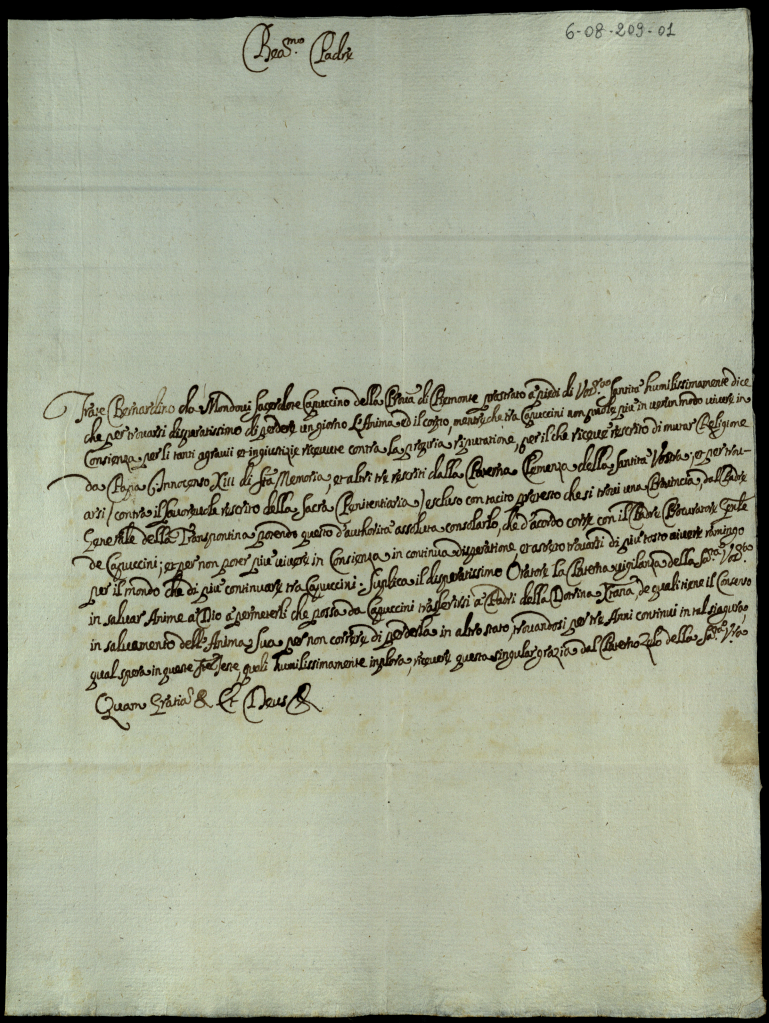 6-08-209-01
Bea.mo Padre
Frate Bernardino da Mondovi Sacerdote Capuccino della Prouia di Piemonte prostrato a piedi di Vos.ra Santità humilissimamente dice
che per trouarsi disperatissimo di perdere un giorno l'Anima, ed il corpo, mentre che tra Capuccini non puole più in uerun modo uiuere in
Consienza per li tanti agrauii et ingiustizie riceuute contra la propria riputatione, per il che riceuè rescritto di mutar Religione
da Papa Innocenso XIII di S.ta Memoria, et altri tre rescritti dalla Paterna Clemenza della Santità Vostra, et per trou-
arsi / contra il fauoreuole rescritto della Sacra Penitentiaria / escluso con tacito pretesto che si troui una Prouincia, dal Padre
Generale della Transpontina potendo questo d'authorità assoluta consolarlo, che d'acordo corre con il Padre Procuratore Gen.le
de Capuccini; et per non poter più uiuere in Consienza in continua disperatione, et astretto trouarsi di più tosto aiuere ramingo
per il mondo che di più continuare tra Capuccini. Suplica il disperatissimo Oratore la Paterna uigilanza della S.ta Vos.ra
in saluar Anime a Dio a permeterli che possa da Capuccini trasferirsi a Padri della Dotrina Xtiana, de quali tiene il Consenso
in saluamento dell'Anima Sua per non correre di perderla in altro stato, trouandosi per tre Anni continui in tal siagura,
qual spera in queste feste, quali humilissimamente inplora, riceuere questa singular grazia dal Paterno Zelo della S.ta V.ra
Quam Gratia &. Et Deus &.